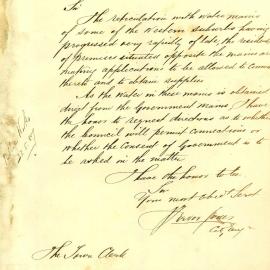 Sir
The reticulation with water mains
of some of the Western suburbs having
progressed very rapidly of late, the residents
of premises situated opposite the mains are
making applications to be allowed to connect
thereto and to obtain supplies
As the water in these mains is obtained
direct from the Government mains, I have
the honor to request directions as to whether
the Council will permit connections or
whether the consent of Government is to
be asked in the matter
I have the honor to be
Sir
Your most obedt Servt
City Engr
The Town Clerk